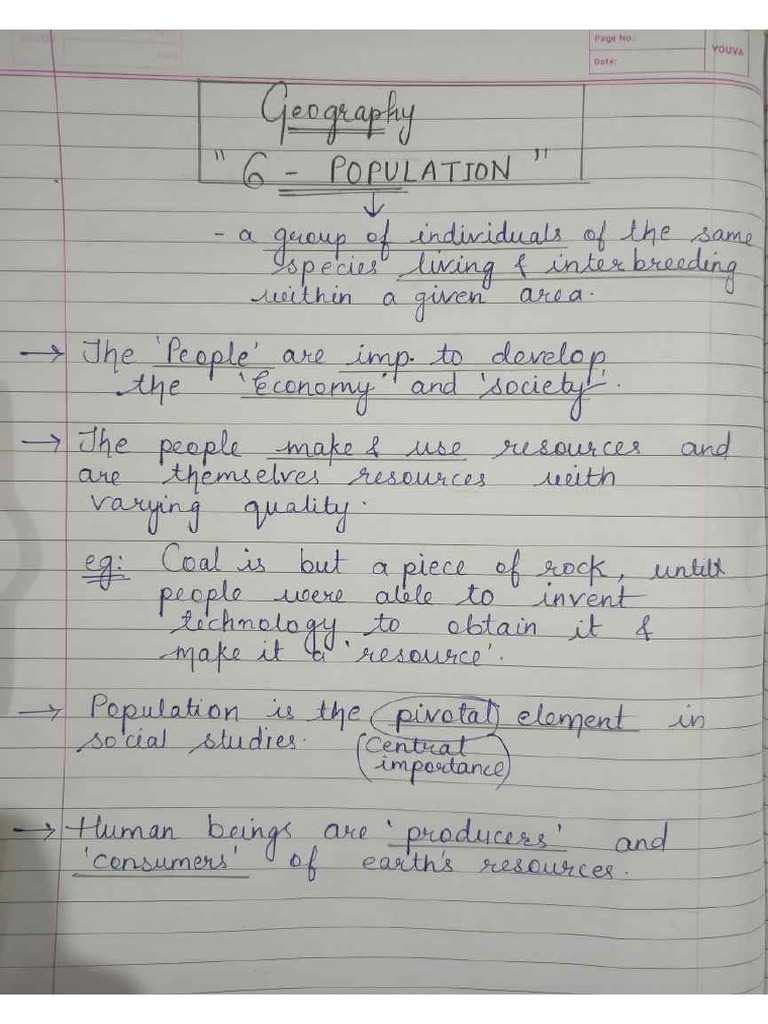 Page No.:
Date:
YOUVA
Geography
" 6 - POPULATION "
- a group of individuals of the same
species living & interbreeding
within a given area.
→ The 'People' are imp. to develop
the 'Economy' and 'society'.
→ The people make & use resources and
are themselves resources with
varying quality.
eg: Coal is but a piece of rock, until
people were able to invent
technology to obtain it &
make it a 'resource'.
→ Population is the pivotal element in
social studies.
(central
importance)
→ Human beings are 'producers' and
'consumers' of earth's resources.